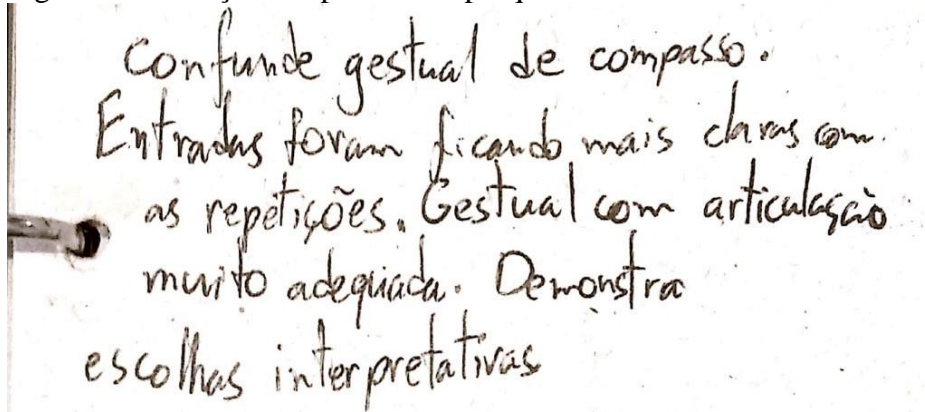 Confunde gestual de compasso.
Entradas foram ficando mais claras com
as repetições. Gestual com articulação
muito adequada. Demonstra
escolhas interpretativas